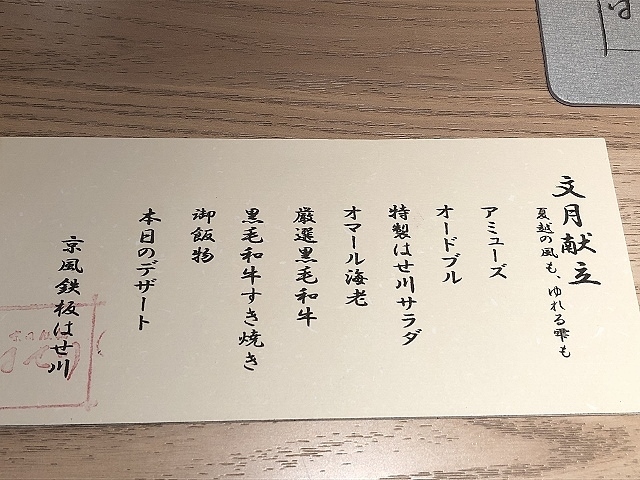 文月献立
夏越の風も、ゆれる雫も
アミューズ
オードブル
特製はせ川サラダ
オマール海老
厳選黒毛和牛
黒毛和牛すき焼き
御飯物
本日のデザート
京風鉄板はせ川